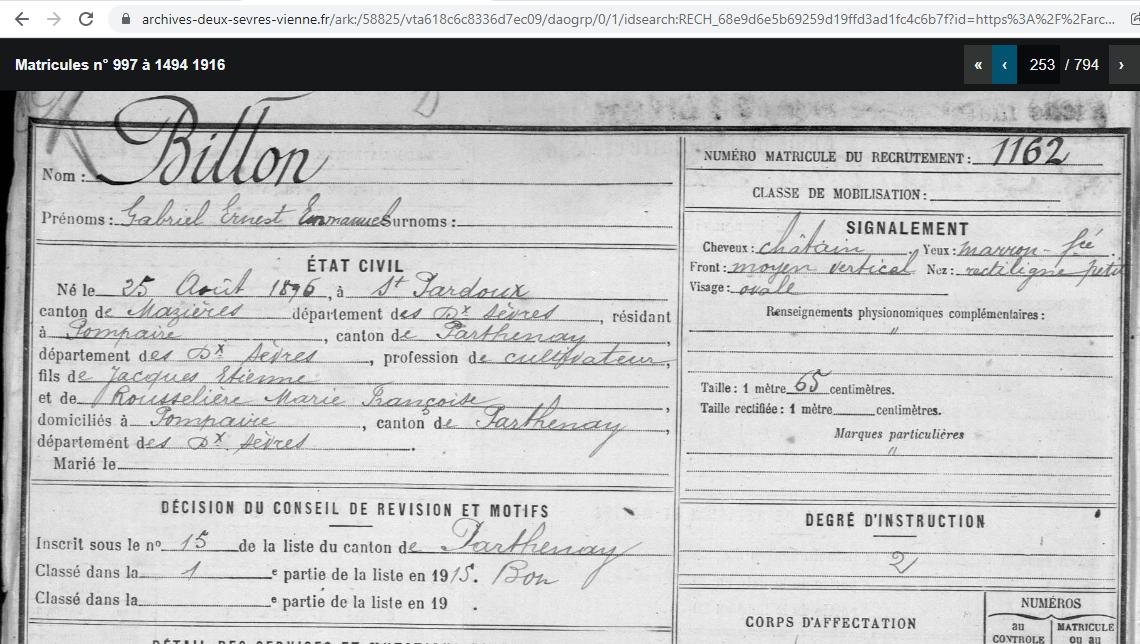 archives-deux-sevres-vienne.fr/ark:/58825/vta618c6c8336d7ec09/daogrp/0/1/idsearch:RECH_68e9d6e5b69259d19ffd3ad1fc4c6b7f?id=https%3A%2F%2Farc...
Matricules n° 997 à 1494 1916
« ‹ 253 / 794 ›
Nom : Billon
Prénoms : Gabriel Ernest Emmanuel Surnoms :
ÉTAT CIVIL
Né le 25 Août 1896, à St Pardoux
canton de Mazières département des Dx Sèvres, résidant
à Pompaire, canton de Parthenay
département des Dx Sèvres, profession de cultivateur,
fils de Jacques Etienne
et de Rousselière Marie Françoise,
domiciliés à Pompaire, canton de Parthenay,
département des Dx Sèvres.
Marié le
DÉCISION DU CONSEIL DE REVISION ET MOTIFS
Inscrit sous le n° 15 de la liste du canton de Parthenay
Classé dans la 1 e partie de la liste en 1915. Bon
Classé dans la e partie de la liste en 19 .
DÉTAIL DES SERVICES ET MUTATIONS
NUMÉRO MATRICULE DU RECRUTEMENT : 1162
CLASSE DE MOBILISATION :
SIGNALEMENT
Cheveux : châtain Yeux : marron-fcé
Front : moyen vertical Nez : rectiligne petit
Visage : ovale
Renseignements physionomiques complémentaires :
"
Taille : 1 mètre 65 centimètres.
Taille rectifiée : 1 mètre centimètres.
Marques particulières
"
DEGRÉ D'INSTRUCTION
2
CORPS D'AFFECTATION
NUMÉROS
au CONTRÔLE
MATRICULE ou au